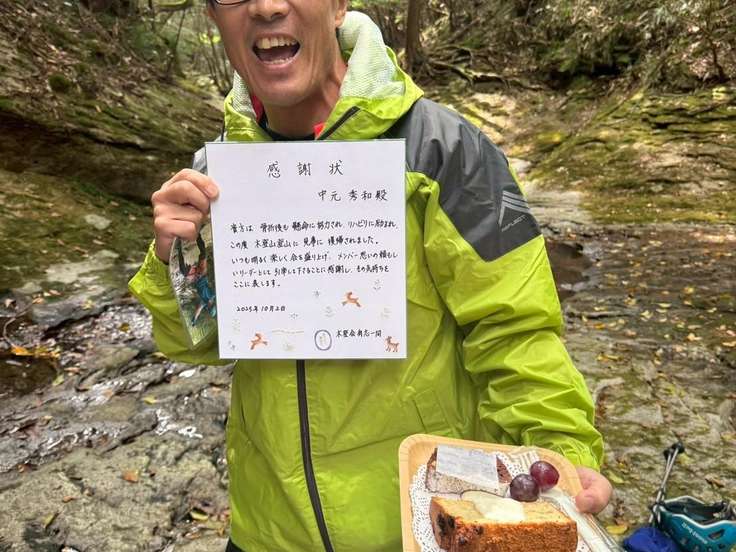 感謝状
中元 秀和殿
貴方は 骨折後も 懸命に努力され、リハビリに励まれ、
この度 木登山登山に 見事に 復帰されました。
いつも明るく 楽しく会を盛り上げ、メンバー思いの頼もし
いリーダーとして 引率して下さることに感謝し、その気持ちを
ここに表します。
2025年 10月2日
木登会有志一同
REFLECT